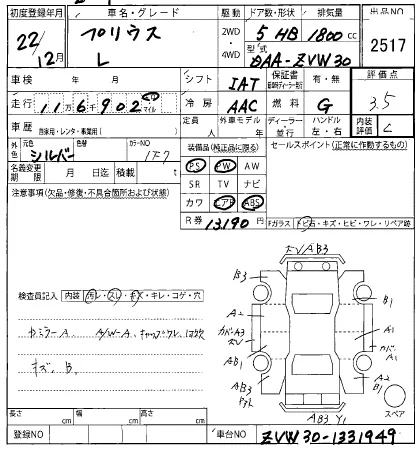 初度登録年月 車名・グレード 駆動 ドア数・形状 排気量 出品NO
22/12月 プリウス L 2WD・4WD 5 HB 1800 cc 2517
型式 DAA-ZVW30
車検 年 月 シフト IAT 保証書 有・無 評価点
走行 11万6千902 マイル 冷房 AAC 燃料 G 3.5
車歴 自家用・レンタ・事業用( ) 定員 人 外車モデル 年 ディーラー・並行 ハンドル 左・右 内装評価 C
外色 元色 シルバー 色替 カラーNO 1F7 装備品(純正品に限る) セールスポイント(正常に作動するもの)
名義変更期限 月 日迄 積載 t PS PW AW
注意事項(欠品・修復・不具合箇所および状態) SR TV ナビ
カワ エアB ABS
R券 13190 円 Fガラス トビ石・キズ・ヒビ・ワレ・リペア跡
ズレ A B3
B3 B1
A2
検査員記入 内装 汚レ・スレ・キズ・キレ・コゲ・穴
カバA3 A1
ズレ カバーA1
ミラーA A/W-A キャップワレ
AB1 A2
キズ B
AB3 B1
AB3 Y1 スペア
長さ cm 幅 cm 高さ cm
登録NO 車台NO ZVW30-1331949